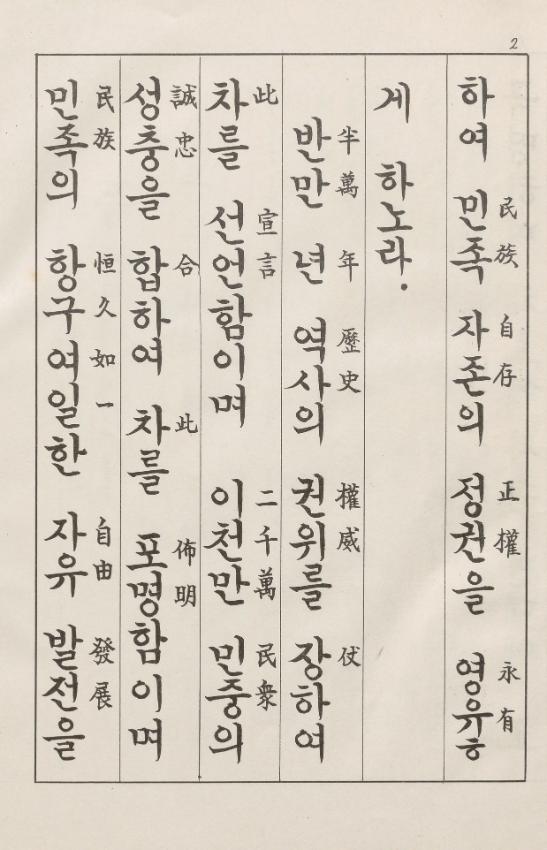 2
하여 민족 자존의 정권을 영유ㅎ
民族 自存 正權 永有
게 하노라.
반만 년 역사의 권위를 장하여
半萬 年 歷史 權威 仗
차를 선언함이며 이천만 민중의
此 宣言 二千萬 民衆
성충을 합하여 차를 포명함이며
誠忠 合 此 佈明
민족의 항구여일한 자유 발전을
民族 恒久如一 自由 發展